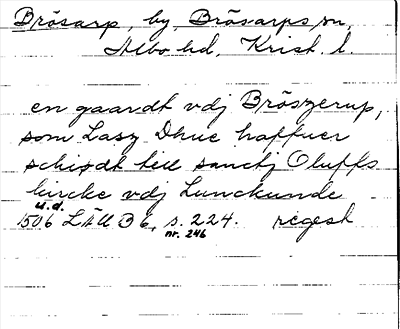 Brösarp, by, Brösarps sn,
Albo hd, Krist. l.
en gaardt vdj Bröszerup,
som Lasz Dhue haffuer
schiødt till sanctj Oluffs
kircke vdj Lunckunde
u.d.
1506 LÄU 3 6, s. 224. regest
nr. 246